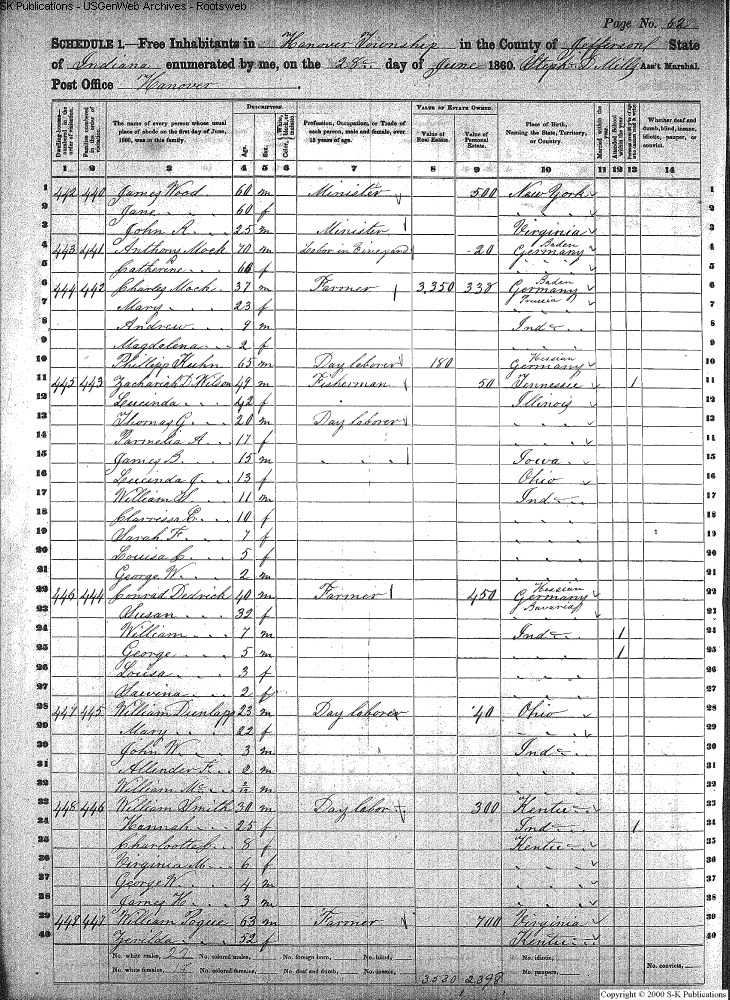 SK Publications - USGenWeb Archives - Rootsweb
Page No. 62
SCHEDULE 1.—Free Inhabitants in Hanover Township in the County of Jefferson State
of Indiana enumerated by me, on the 28 day of June 1860. Steph. D. Mills Ass't Marshal.
Post Office Hanover.
DESCRIPTION. VALUE OF ESTATE OWNED.
Dwelling-houses—numbered in the order of visitation. Families numbered in the order of visitation. The name of every person whose usual place of abode on the first day of June, 1860, was in this family. Age. Sex. Color, Profession, Occupation, or Trade of each person, male and female, over 15 years of age. Value of Real Estate. Value of Personal Estate. Place of Birth, Naming the State, Territory, or Country. Married within the year. Attended School within the year. Whether deaf and dumb, blind, insane, idiotic, pauper, or convict.
1 2 3 4 5 6 7 8 9 10 11 12 13 14
1 442 440 James Wood 60 m Minister 500 New York 1
2 Jane 60 f " " 2
3 John R. 25 m Minister Virginia 3
4 443 441 Anthony Mock 70 m Labor in Vineyard 20 Baden Germany 4
5 Catherine 66 f " " 5
6 444 442 Charley Mock 37 m Farmer 3,350 338 Baden Germany 6
7 Mary 23 f Prussia " 7
8 Andrew 9 m Ind 8
9 Magdalena 2 f " 9
10 Phillipp Kuhn 65 m Day laborer 180 Hessian Germany 10
11 445 443 Zachariah D. Wilson 49 m Fisherman 50 Tennessee 1 11
12 Lucinda 42 f Illinois 12
13 Thomas G. 20 m Day laborer " 13
14 Parmelia A. 17 f " 14
15 James B. 15 m " " Iowa 15
16 Lucinda J. 13 f Ohio 16
17 William S. 11 m Ind 17
18 Clarrissa E. 10 f " 18
19 Sarah F. 7 f " 19
20 Louisa C. 5 f " 20
21 George W. 2 m " 21
22 446 444 Conrad Dedrich 40 m Farmer 450 Hessian Germany 22
23 Susan 32 f Bavaria " 23
24 William 7 m Ind 1 24
25 George 5 m " 1 25
26 Louisa 3 f " 26
27 Savina 2 f " 27
28 447 445 William Dunlapp 23 m Day laborer 40 Ohio 28
29 Mary 22 f " 29
30 John W. 3 m Ind 30
31 Allender F. 2 m " 31
32 William Mc m " 32
33 448 446 William Smith 30 m Day labor 300 Kentuc 33
34 Hannah 25 f Ind 1 34
35 Charlotte C. 8 f Kentuc 35
36 Virginia M. 6 f " 36
37 George W. 4 m " 37
38 James H. 3 m " 38
39 448 447 William Pogue 63 m Farmer 700 Virginia 39
40 Zerilda 52 f Kentuc 40
No. white males, No. colored males, No. foreign born, No. blind, No. idiotic, No. convicts,
No. white females, No. colored females, No. deaf and dumb, No. insane, No. paupers,
3530 2398
Copyright © 2000 S-K Publications